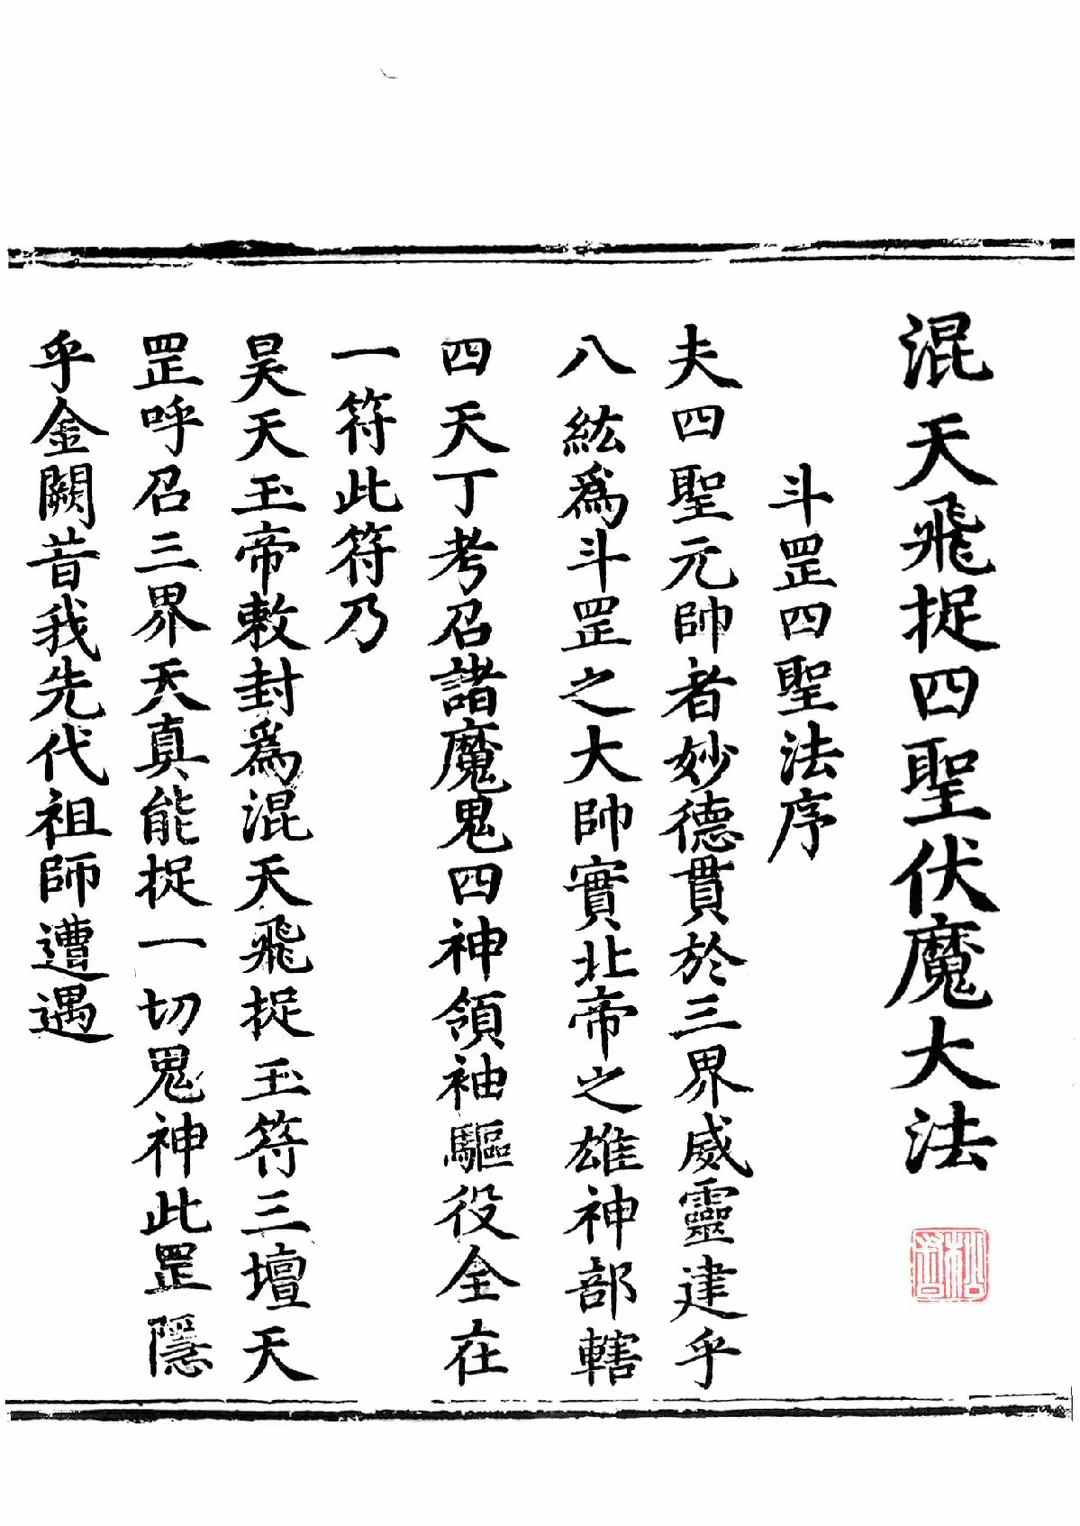 混天飛捉四聖伏魔大法
斗罡四聖法序
夫四聖元帥者妙德貫於三界威靈建乎
八紘爲斗罡之大帥實北帝之雄神部轄
四天丁考召諸魔鬼四神領袖驅役全在
一符此符乃
昊天玉帝敕封爲混天飛捉玉符三壇天
罡呼召三界天真能捉一切鬼神此罡隱
乎金闕昔我先代祖師遭遇